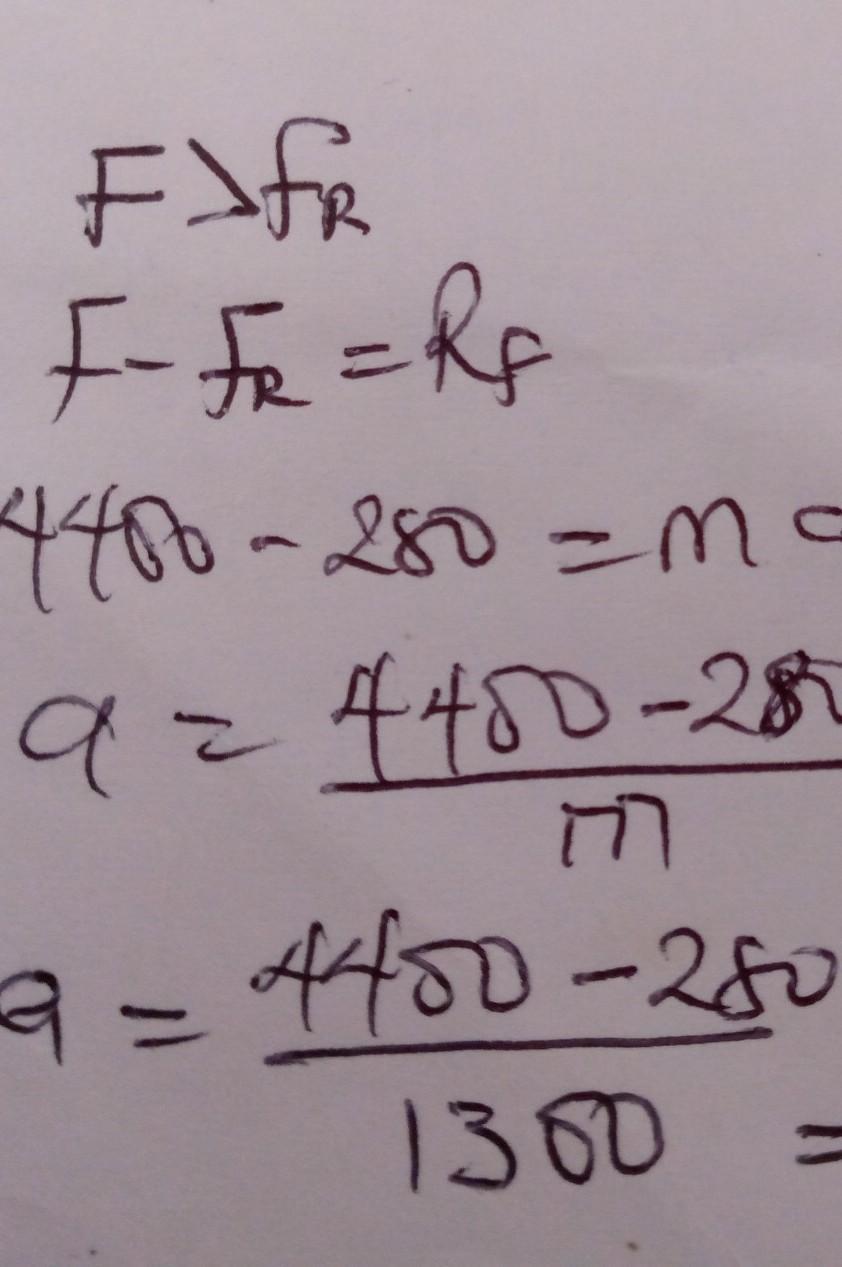 F > fR
F - fR = Rf
4400 - 280 = ma
a = 4400 - 280
m
a = 4400 - 280
1300 =